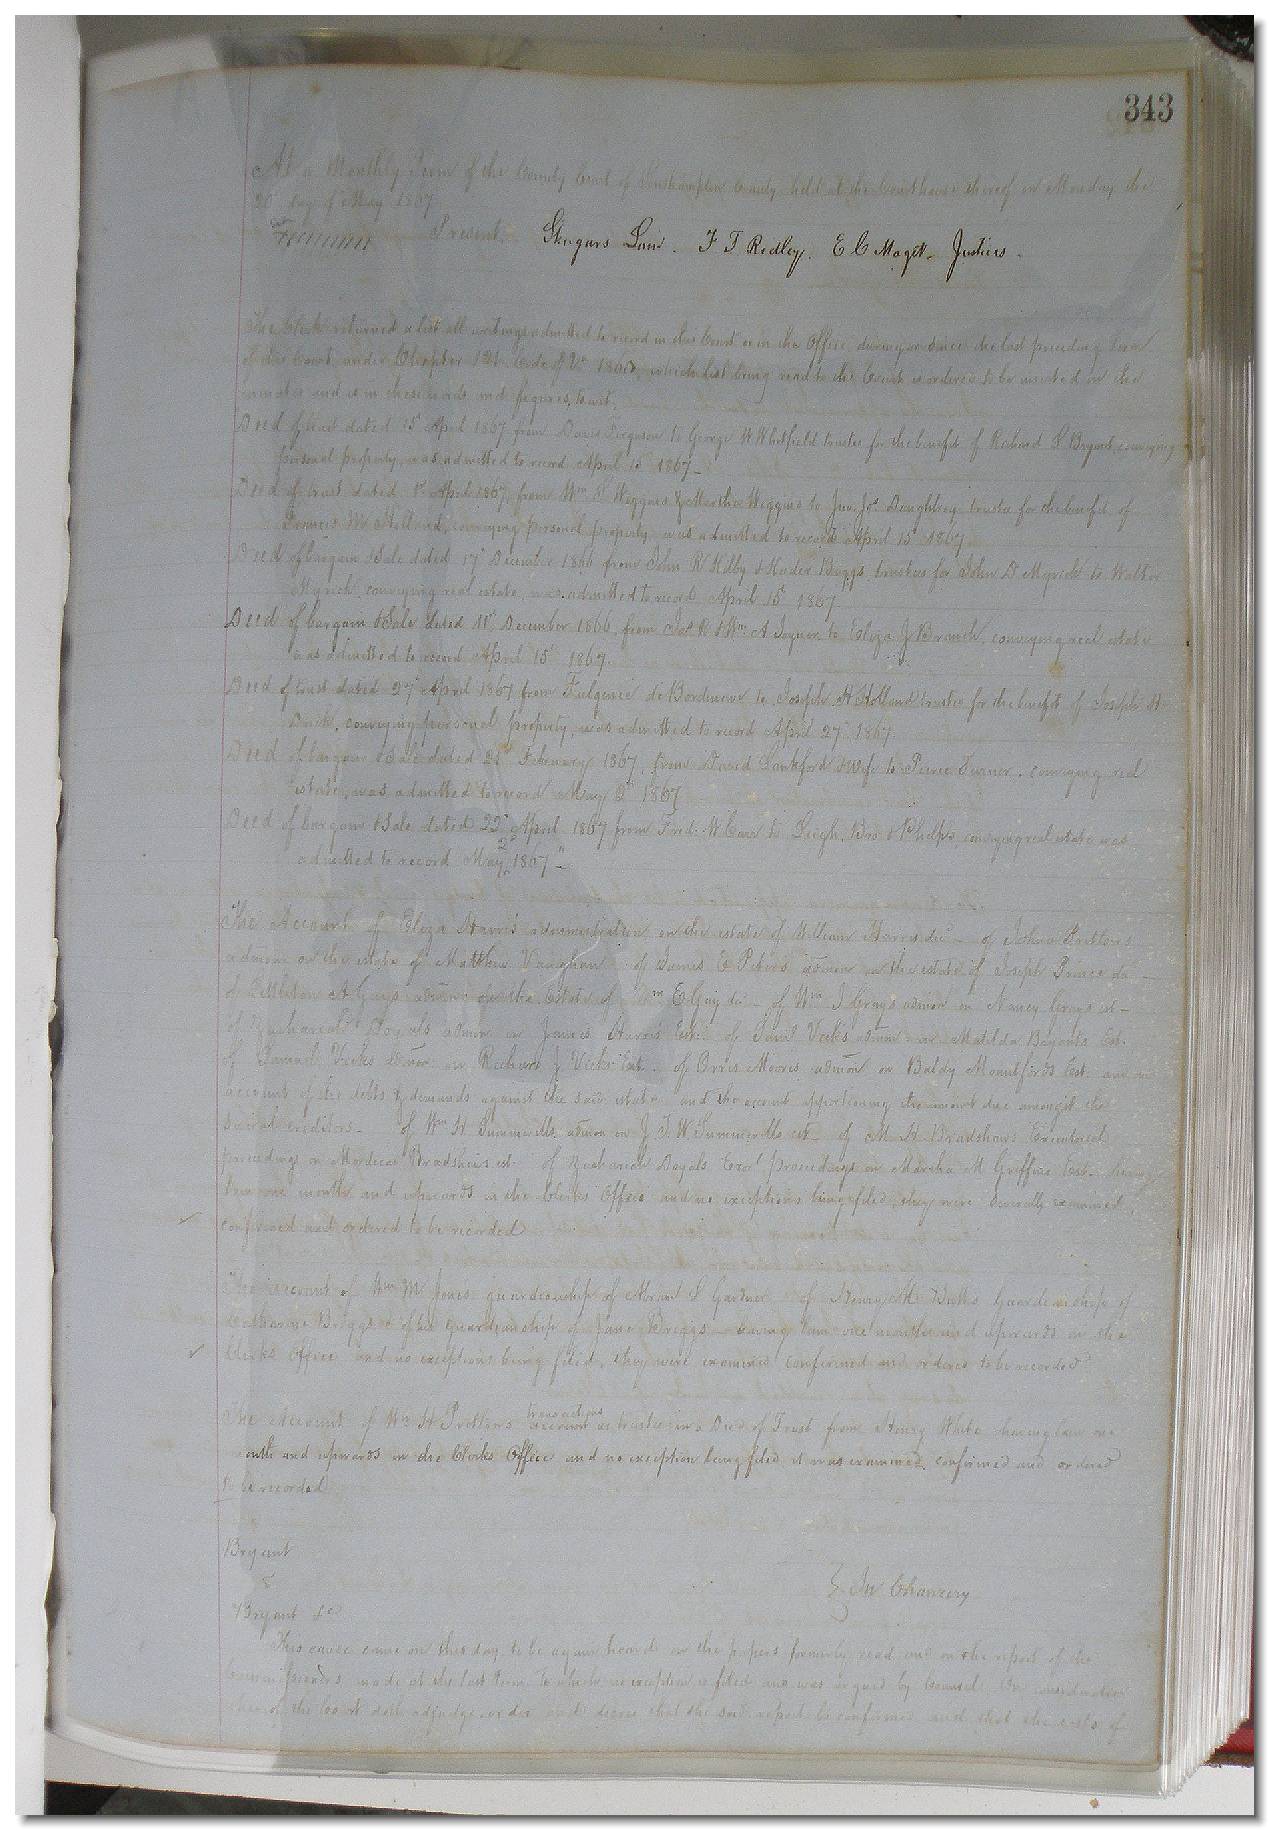 343
At a Monthly Term of the County Court of Southampton County held at the Courthouse thereof on Monday the
20th day of May 1867
Present. Law. F T Ridley. E C Maget. Justices.
The Clerk returned a list all writings admitted to record in this Court or in the Office, during or since the last preceding term
of this Court, under Chapter 121 Code of Va 1860, which list being read to the Court is ordered to be inserted in the
minutes and is in these words and figures, to wit.
Deed of trust dated 15" April 1867 from Davis Ferguson to George W Whitfield trustee for the benefit of Richard S Bryant, conveying
personal property, was admitted to record April 15 1867-
Deed of trust dated 1st April 1867, from Wm S Wiggins & Martha Wiggins to Jno. Jos. Daughtrey trustee for the benefit of
Frances M. Holland, conveying personal property, was admitted to record April 15 1867
Deed of bargain & Sale dated 17" December 1866 from John R Kilby & Boggs trustees for John D Myrick to Walter
Myrick, conveying real estate, was admitted to record April 15 1867.
Deed of bargain & Sale dated 11" December 1866, from Jas R & Wm A Joyner to Eliza J Branch, conveying real estate
was admitted to record April 15" 1867.
Deed of trust dated 27" April 1867 from de Bordenave to Joseph H Holland trustee for the benefit of Joseph H
conveying personal property, was admitted to record April 27" 1867
Deed of bargain & Sale dated February 1867, from David Lankford & Wife to Pierce Turner, conveying real
estate, was admitted to record May 1867
Deed of bargain & Sale dated 22" April 1867 from Fred. W Carr to Leigh, Bro & Phelps, conveying real estate was
admitted to record May 2" 1867"-
The Account of Eliza Harris administration on the estate of William Harris dec - of John Prettons
admon on the estate of Matthew Vaughan of James E Peters admon on the estate of Joseph Prince de
of Littleton A Grays admons on the Estate of Wm E Gay de - of Wm J Grays admon on Nancy Grays est -
of Zachariah Doyals admon on James Harris Est. of Saml Vicks admon on Matilda Bryants Est.
of Samuel Vicks admon on Richard J Vicks Est - of Orris Moores admon on Baldy Mountfords Est. and an
account of the debts & demands against the said estate and the account apportioning the amount due amongst the
several creditors - of Wm H Summerells admon on J. T. W Summerells est - of M H Bradshaws Executorial
proceedings on Mordecai Bradshaws est of Zachariah Doyals Exorl proceedings on Martha M Griffins Est - having
lain one month and upwards in the Clerks Office and no exceptions being filed, they were severally examined,
confirmed and ordered to be recorded
The account of Wm M Jones guardianship of L Gardner of Henry M Butts Guardianship of
Catharine Briggs & of his guardianship of Jane Briggs having lain one month and upwards in the
Clerks Office and no exceptions being filed, they were examined confirmed and ordered to be recorded
The Account of Wm H Prettons transactions account as trustee in a Deed of Trust from Henry White having lain one
month and upwards in the Clerks Office and no exception being filed it was examined, confirmed and ordered
to be recorded
Bryant
Bryant &c
In Chancery
This cause came on this day to be again heard on the papers formerly read and on the report of the
Commissioners made at the last term, to which no exception is filed and was argued by Counsel. On consideration
whereof the Court doth adjudge, order and decree that the said report be confirmed and that the costs of